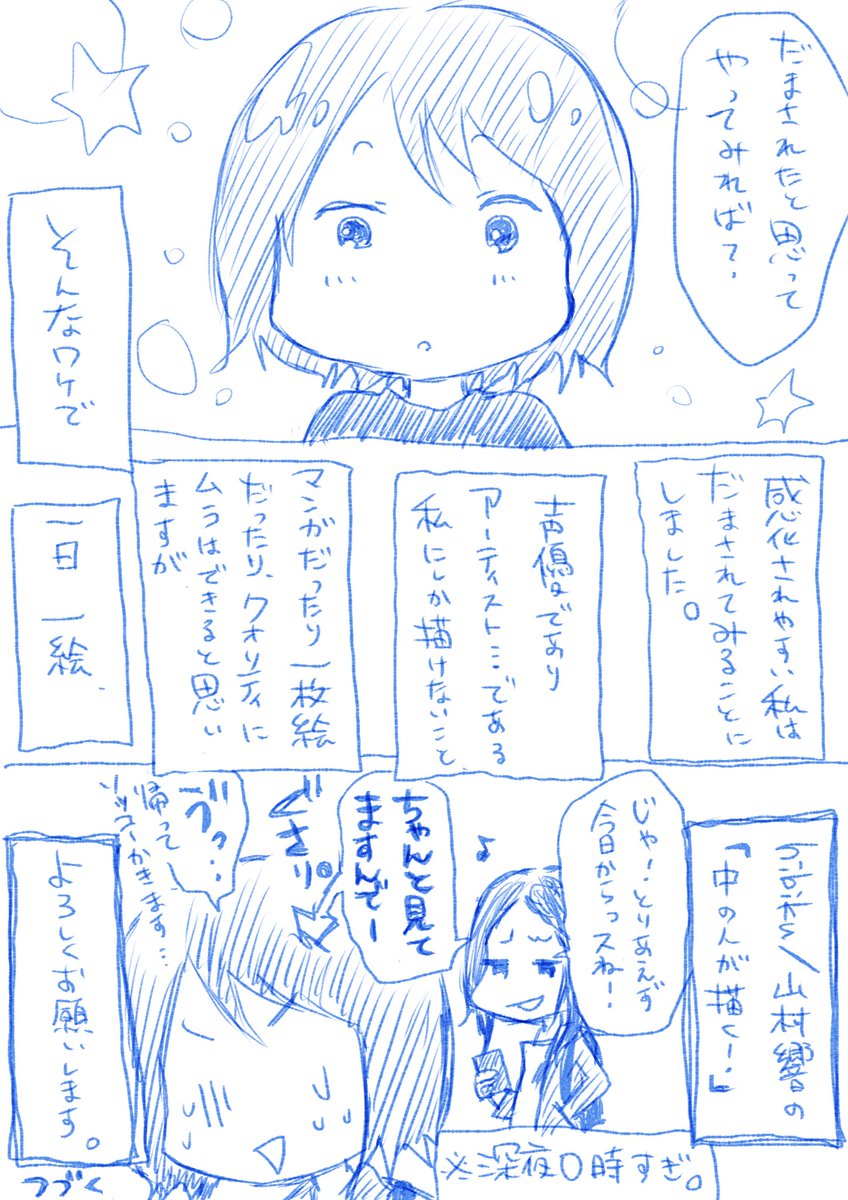 だまされたと思って
やってみれば?
そんなワケで
感化されやすい私は
だまされてみることに
しました。
声優であり
アーティスト…である
私にしか描けないこと
マンガだったり一枚絵
だったり、クオリティに
ムラはできると思い
ますが
一日一絵
山村響の
「中の人が描くー!」
じゃ!とりあえず
今日からっスね!
ちゃんと見て
ますんでー
♪
ぐさり。
ゔっ…
帰って
ソッコーかきます…
※深夜0時すぎ。
よろしくお願いします。
つづく